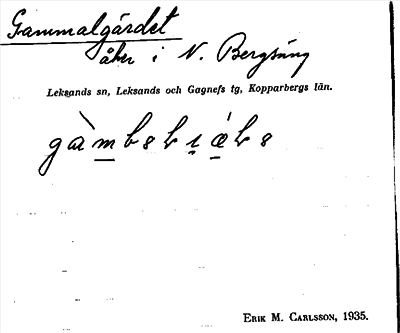 Gammalgärdet
åker i N. Bergsäng
Leksands sn, Leksands och Gagnefs tg, Kopparbergs län.
Erik M. Carlsson, 1935.